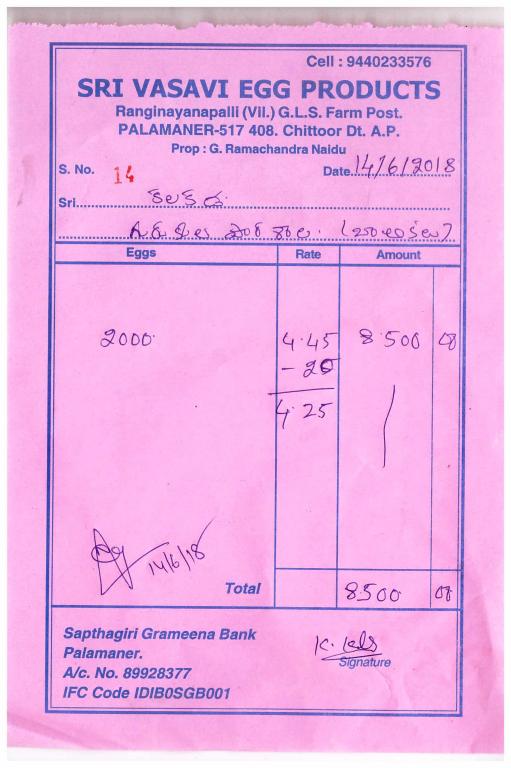 Cell : 9440233576
SRI VASAVI EGG PRODUCTS
Ranginayanapalli (Vil.) G.L.S. Farm Post.
PALAMANER-517 408. Chittoor Dt. A.P.
Prop : G. Ramachandra Naidu
S. No. 14 Date 14/6/2018
Sri
Eggs Rate Amount
2000 4.45 8.500
- 20
4.25
14/6/18
Total 8500
Sapthagiri Grameena Bank
Palamaner.
A/c. No. 89928377
IFC Code IDIB0SGB001
Signature